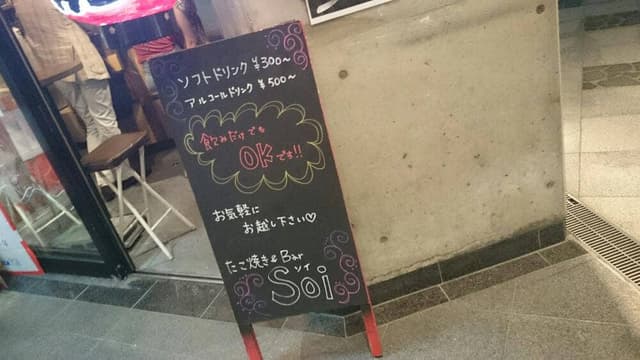 ソフトドリンク ¥300〜
アルコールドリンク ¥500〜
飲みだけでも
OKです!!
お気軽に
お越し下さい♡
たこ焼き & Bar
ソイ
Soi